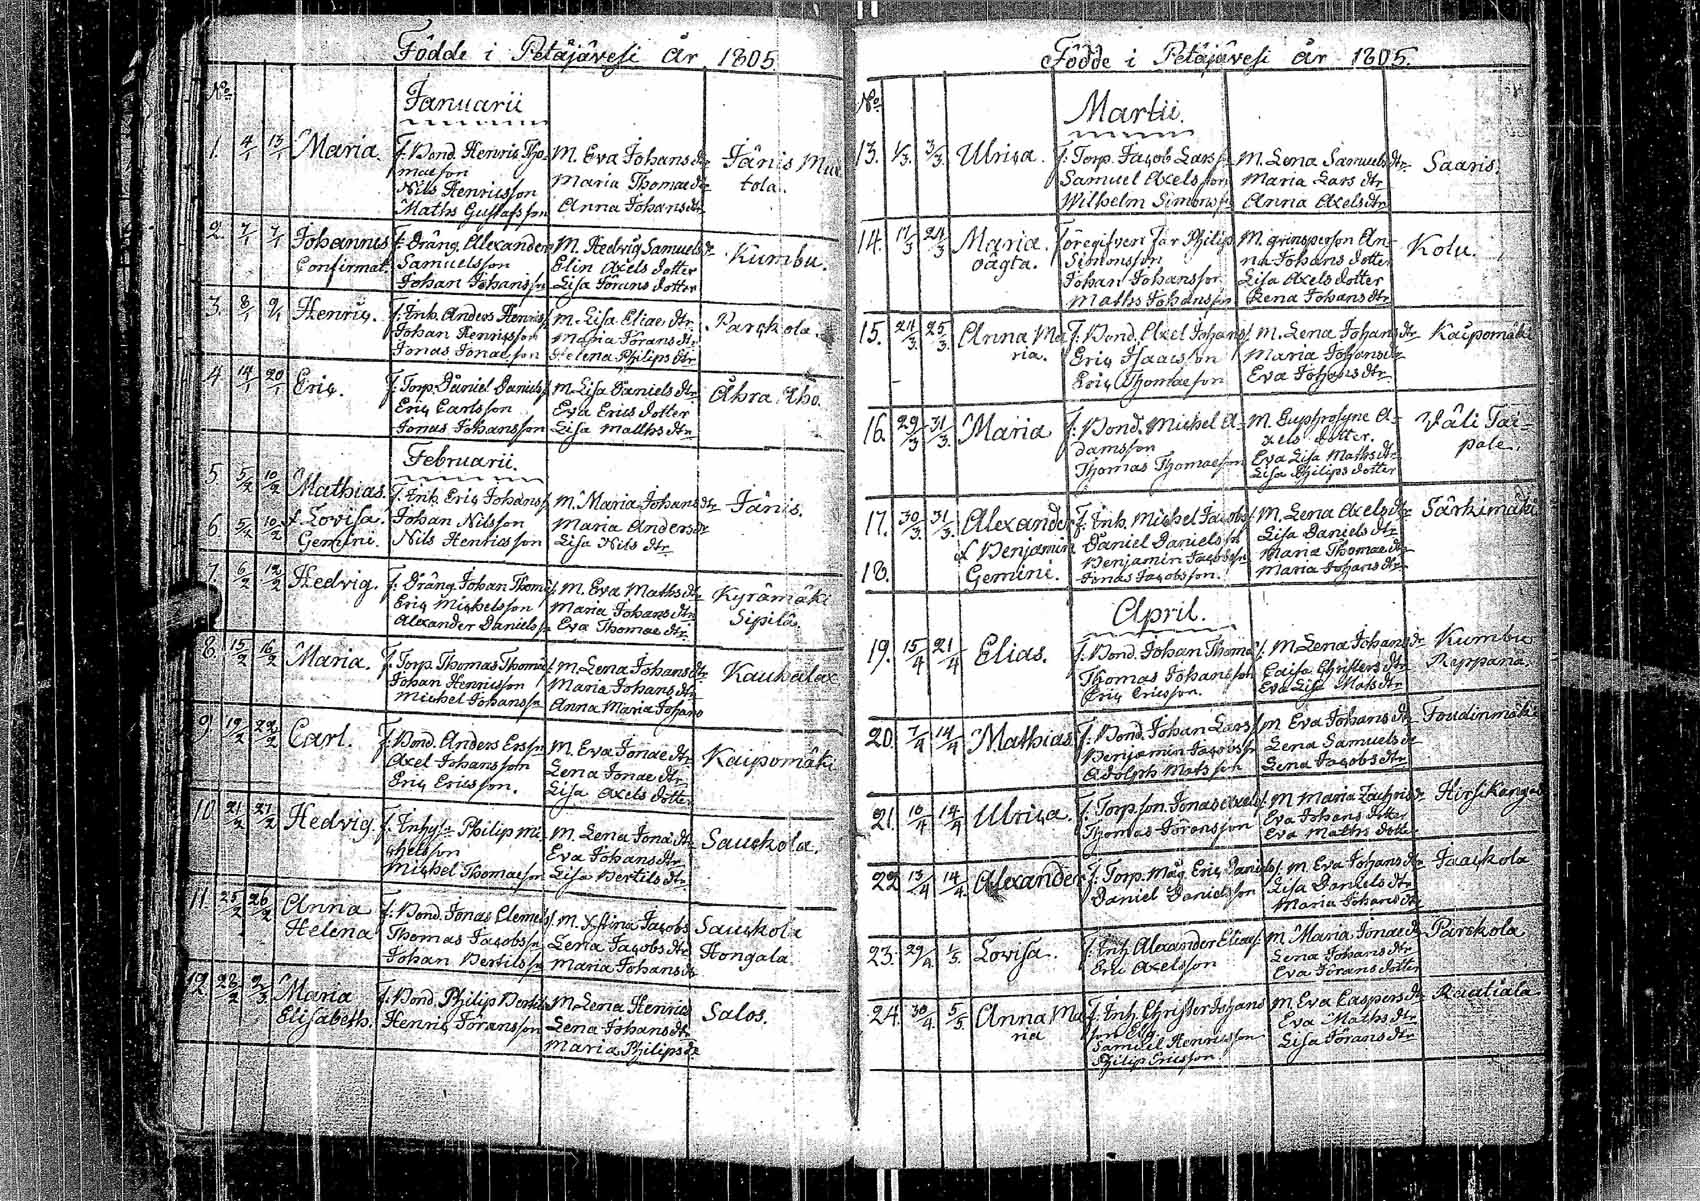 Födde i Petäjävesi År 1805
No
Januarii
1. 4/1 13/1 Maria. f. Bond. Henric Tho- M. Eva Johans dtr Jänis Mut
masson Maria Thomae dtr tola.
Nils Henricsson Anna Johans dtr
Maths Gustafsson
2. 7/1 7/1 Johannes f. Dräng. Alexander M. Hedvig Samuels dr Kumbu.
Confirmat. Samuelsson Elin Axels dotter
Johan Johansson Lisa Jörans dotter
3. 8/1 9/1 Henric. f. Inh. Anders Henrics M. Lisa Eliae dtr Parckola.
Johan Henricsson Maria Jörans dtr
Jonas Jonaesson Helena Philips dtr
4 14/1 20/1 Eric. f. Torp. Daniel Daniels M. Lisa Daniels dtr Ähra Aho.
Eric Carlsson Eva Erics dotter
Jonas Johansson Lisa Matths dtr
Februarii.
5 5/2 10/2 Mathias. f. Inh. Eric Johans M. Maria Johans dtr Jänis.
6 5/2 10/2 & Lovisa. Johan Nilsson Maria Anders dr
Gemini. Nils Henricsson Lisa Nils dtr
7. 6/2 12/2 Hedvig. f. Dräng. Johan Thom M. Eva Maths dtr Kyrämäki
Eric Michelsson Maria Johans dtr Sipilä.
Alexander Daniels Eva Thomae dtr
8. 15/2 16/2 Maria. f. Torp. Thomas Thomae M. Lena Johans dtr Kaukalax
Johan Henricsson Maria Johans dtr
Michel Johansson Anna Maria Johans
9. 19/2 22/2 Carl. f. Bond. Anders Ersson M. Eva Jonae dtr Kaipomäki
Axel Johansson Lena Jonae dtr
Eric Ericsson. Lisa Axels dotter
10. 21/2 27/2 Hedvig. f. Inhys Philip Mi M. Lena Jona dtr Sauckola.
chelsson Eva Johans dtr
Michel Thomaesson Lisa Bertils dtr
11. 25/2 26/2 Anna f. Bond. Jonas Clemets M. Stina Jacobs Sauckola
Helena Thomas Jacobsson Lena Jacobs dtr Hongala.
Johan Bertilsson Maria Johans dr
12. 28/2 2/3 Maria f. Bond Philip Bertils M. Lena Henrics Salos.
Elisabeth. Henric Jöransson Lena Johans dtr
Maria Philips dr
Födde i Petäjävesi År 1805.
No
Martii.
13. 1/3. 3/3 Ulrica. f. Torp. Jacob Lars M. Lena Samuels dtr Saaris.
Samuel Axelsson Maria Lars dtr
Wilhelm Simonsson Anna Axels dtr
14. 17/3 24/3 Maria. föregifven far Philip M. qvinsperson An- Kolu.
oägta. Simonsson na Johans dotter
Johan Johansson Lisa Axels dotter
Maths Johansson Lena Johans dtr
15. 24/3 25/3 Anna Ma f. Bond. Axel Johans M. Lena Johans dtr Kaipomäki
ria. Eric Isacsson Maria Johans dr
Eric Thomaeson Eva Johans dtr
16. 29/3 31/3 Maria f. Bond. Michel A- M. Euphrosyne A- Väli Tai-
damsson xels dotter. pale.
Thomas Thomaeson Eva Lisa Maths dtr
Lisa Philips dotter
17. 30/3 31/3 Alexander f. Inh. Michel Jacobs M. Lena Axels dtr Särkimäki
& Benjamin Daniel Danielsson Lisa Daniels dtr
18. Gemini. Benjamin Jacobsson Maria Thomae dtr
Jonas Jacobsson. Maria Johans dtr
April.
19. 15/4 21/4 Elias. f. Bond. Johan Thoma M. Lena Johans dr Kumbu
Thomas Johansson Caisa Christers dtr Ryppänä.
Eric Ericsson. Eva Lisa Mats dtr
20. 7/4 14/4 Mathias f. Bond. Johan Lars M Eva Johans dtr Toudinmäki
Benjamin Jacobsson Lena Samuels dr
Adolph Matsson Lena Jacobs dtr
21. 10/4 14/4 Ulrica. f. Torp. son. Jonas Axels M Maria Zachris dr Hirsikangas
Thomas Jöransson Eva Johans dotter
Eva Maths dotter
22 13/4 14/4 Alexander f. Torp. Måg. Eric Daniels M Eva Johans dtr Jaackola
Daniel Danielsson Lisa Daniels dtr
Maria Johans dtr
23. 29/4 1/5. Lovisa. f. Inh. Alexander Eliae M Maria Jonae dr Parckola
Eric Axelsson Lena Johans dtr
Eva Jörans dotter
24. 30/4. 5/5 Anna Ma f. Inh. Christer Johans M. Eva Caspers dtr Raatiala
ria son Esq. Eva Maths dtr
Samuel Henricsson Lisa Jörans dtr
Philip Ericsson